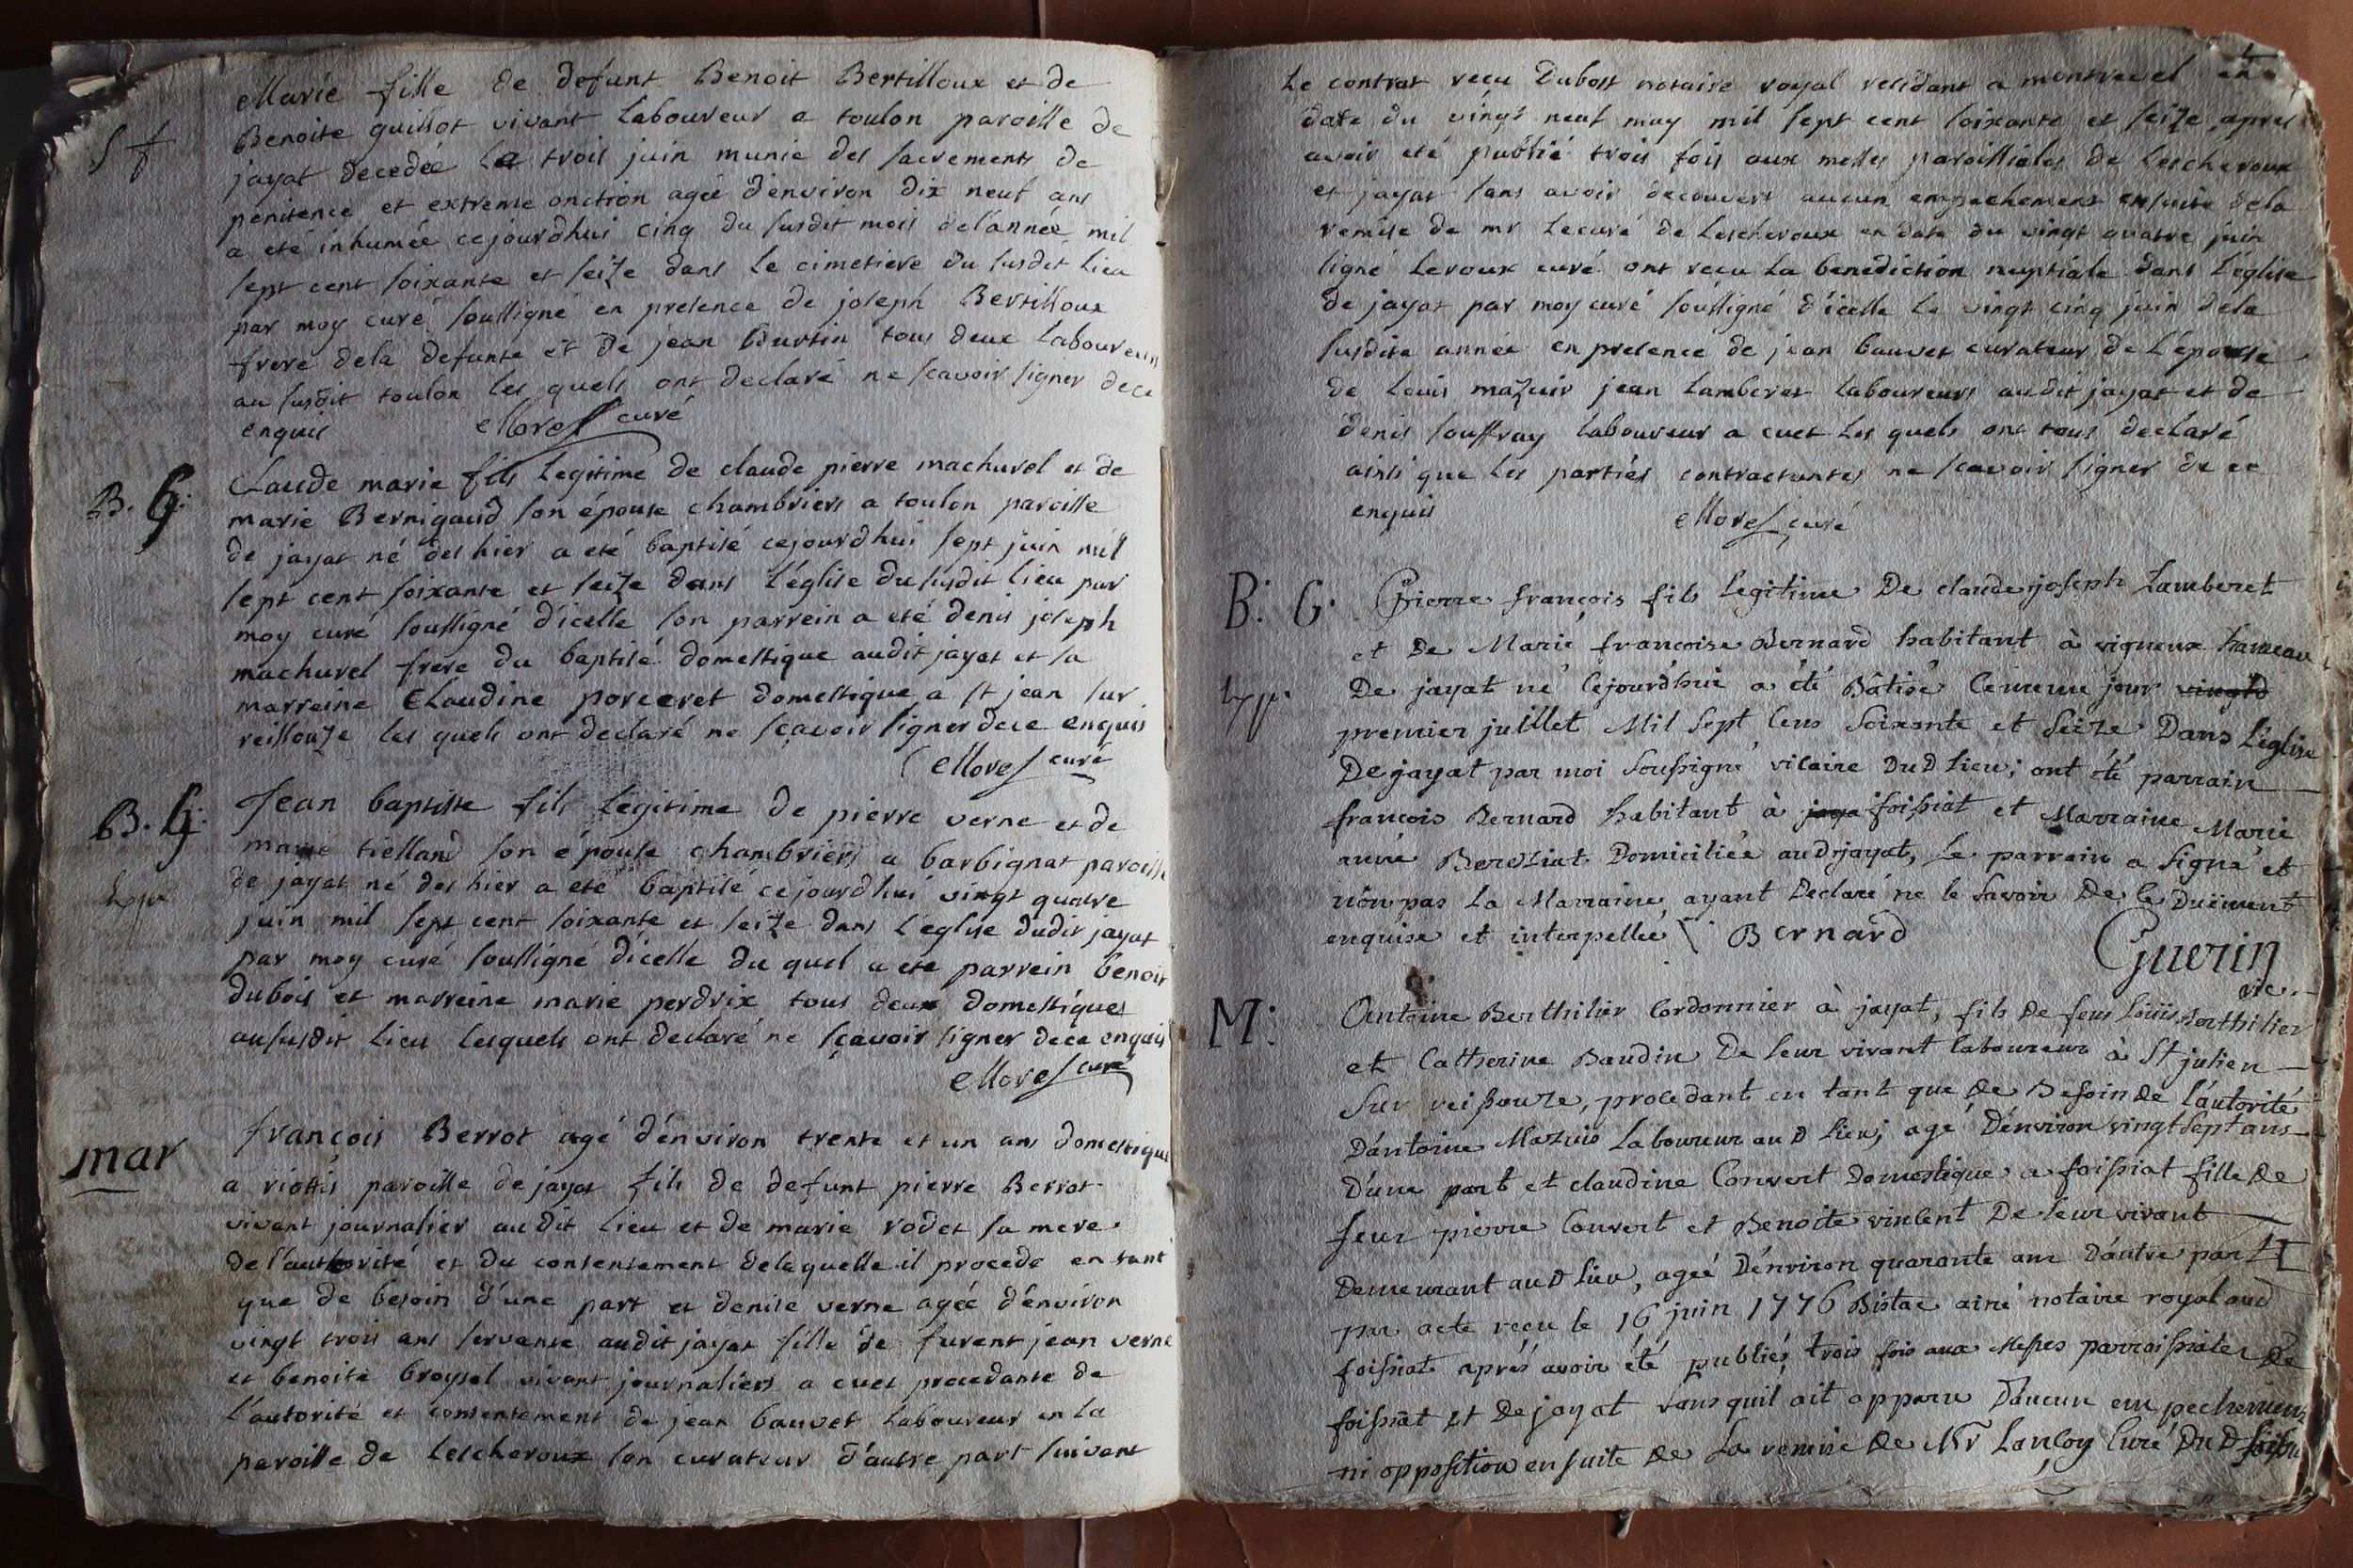 S f
Marie fille de defunt Benoit Bertilloux et de
Benoite guillot vivant Laboureur a toulon paroisse de
jayat decedée le trois juin munie des sacrements de
penitence et extreme onction agée d'environ dix neuf ans
a eté inhumée cejourdhui cinq du susdit mois de l'année mil
sept cent soixante et seize dans le cimetiere du susdit lieu
par moy curé soussigné en presence de joseph Bertilloux
frere dela defunte et de jean Burtin tous deux Laboureurs
au susdit toulon les quels ont declaré ne scavoir signer dece
enquis Morel curé
B. G:
Claude marie fils legitime de claude pierre machurel et de
marie Bernigaud son épouse chambriers a toulon paroisse
de jayat né des hier a eté baptisé cejourdhui sept juin mil
sept cent soixante et seize dans l'église du susdit lieu par
moy curé soussigné d'icelle son parrein a eté denis joseph
machurel frere du baptisé domestique audit jayat et sa
marreine Claudine porceret domestique a st jean sur
reissouze les quels ont declaré ne sçavoir signer dece enquis
Morel curé
B. G:
Jean baptiste fils legitime de pierre verne et de
marie tielland son épouse chambriers a barbignat paroisse
de jayat né des hier a eté baptisé cejourdhui vingt quatre
juin mil sept cent soixante et seize dans l'eglise dudit jayat
par moy curé soussigné d'icelle du quel a eté parrein benoit
dubois et marreine marie perdrix tous deux domestiques
aususdit lieu lesquels ont declaré ne sçavoir signer dece enquis
Morel curé
mar
françois Berrot agé d'environ trente et un ans domestique
a riottis paroisse de jayat fils de defunt pierre Berrot
vivant journalier audit lieu et de marie rodet sa mere
de l'authorité et du consentement delaquelle il procede en tant
que de besoin d'une part et denise verne agée d'environ
vingt trois ans servante audit jayat fille de furent jean verne
et benoite broysel vivant journaliers a cuet procedante de
l'autorité et consentement de jean bauvet Laboureur en la
paroisse de Lescheroux son curateur d'autre part suivant
le contrat reçu Dubost notaire royal residant a montrevel en
date du vingt neuf may mil sept cent soixante et seize, apres
avoir eté publié trois fois aux messes paroissiales de Lescheroux
et jayat sans avoir decouvert aucun empechement ensuite dela
remise de mr Lecuré de Lescheroux en date du vingt quatre juin
signé Leroux curé ont recu la benediction nuptiale dans l'église
de jayat par moy curé soussigné d'icelle le vingt cinq juin dela
susdite année en presence de jean bauvet curateur de l'épouse
de Louis mazuir jean Lamberet laboureurs audit jayat et de
denis souffray laboureur a cuet les quels ont tous declaré
ainsi que les parties contractantes ne scavoir signer de ce
enquis Morel curé
B: G.
Pierre françois fils legitime De claude joseph Lamberet
et De Marie françoise Bernard habitant à vigneux hameau
De jayat né cejourd'hui a été Bâtisé le même jour vingtd
premier juillet Mil Sept Cens Soixante et Seize Dans l'église
De jayat par moi Soussigné vicaire Dud lieu; ont été parrain
françois Bernard habitant à jaya foissiat et Marraine Marie
anne Bereziat Domiciliée aud jayat, le parrain a signé et
non pas la Marraine ayant Declaré ne le savoir De ce Duëment
enquise et interpellée Bernard
Guerin
vic.
M:
Antoine Berthilier Cordonnier à jayat, fils de feus Louis Berthilier
et Catherine Baudin De leur vivant laboureur à St julien
Sur reissouze, procedant en tant que de Besoin de l'autorité
D'antoine Mazuir laboureur aud lieu; agé D'environ vingt sept ans
D'une part et claudine Convert Domestique a foissiat fille de
feus pierre Convert et Benoite vincent De leur vivant
Demeurant aud lieu, agée D'environ quarante ans D'autre part
par acte reçu le 16 juin 1776 Bistac ainé notaire royal aud
foissiat après avoir été publiés trois fois aux Messes parroissiales de
foissiat et De jayat sans quil ait apparu D'aucun empechement
ni opposition ensuite de la remise de Mr Lançoy Curé Dud